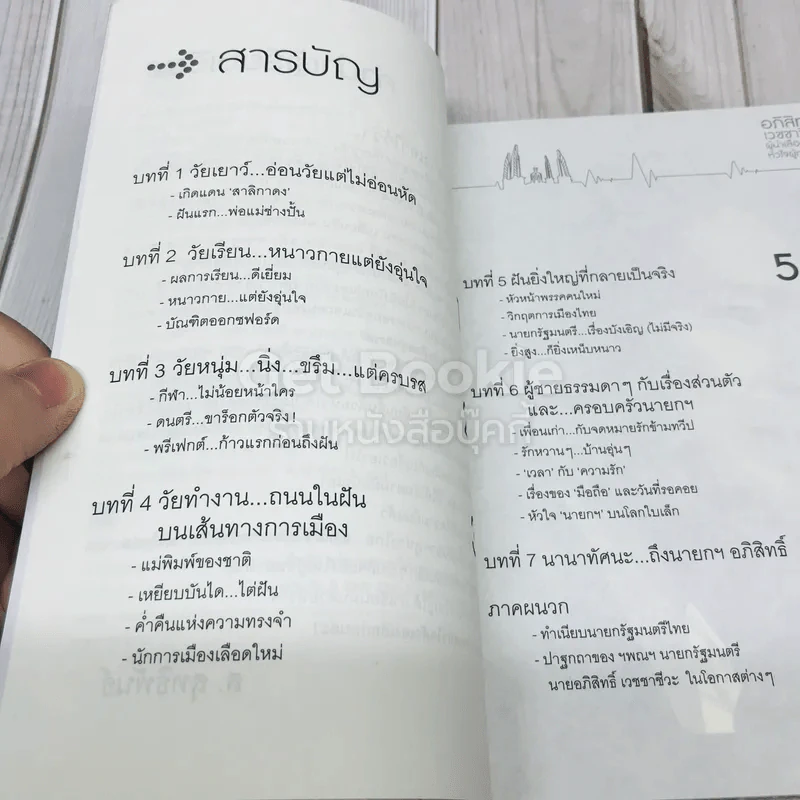 สารบัญ
บทที่ 1 วัยเยาว์...อ่อนวัยแต่ไม่อ่อนหัด
- เกิดแดน ‘สาลิกาดง’
- ฝันแรก...พ่อแม่ช่างปั้น
บทที่ 2 วัยเรียน...หนาวกายแต่ยังอุ่นใจ
- ผลการเรียน...ดีเยี่ยม
- หนาวกาย...แต่ยังอุ่นใจ
- บัณฑิตออกซฟอร์ด
บทที่ 3 วัยหนุ่ม...นิ่ง...ขรึม...แต่ครบรส
- กีฬา...ไม่น้อยหน้าใคร
- ดนตรี...ขาร็อกตัวจริง!
- พรีเฟกต์...ก้าวแรกก่อนถึงฝัน
บทที่ 4 วัยทำงาน...ถนนในฝัน
บนเส้นทางการเมือง
- แม่พิมพ์ของชาติ
- เหยียบบันได...ไต่ฝัน
- ค่ำคืนแห่งความทรงจำ
- นักการเมืองเลือดใหม่
บทที่ 5 ฝันยิ่งใหญ่ที่กลายเป็นจริง
- หัวหน้าพรรคคนใหม่
- วิกฤตการเมืองไทย
- นายกรัฐมนตรี...เรื่องบังเอิญ (ไม่มีจริง)
- ยิ่งสูง...ก็ยิ่งเหน็บหนาว
5
บทที่ 6 ผู้ชายธรรมดาๆ กับเรื่องส่วนตัว
และ...ครอบครัวนายกฯ
- เพื่อนเก่า...กับจดหมายรักข้ามทวีป
- รักหวานๆ...บ้านอุ่นๆ
- ‘เวลา’ กับ ‘ความรัก’
- เรื่องของ ‘มือถือ’ และวันที่รอคอย
- หัวใจ ‘นายกฯ’ บนโลกใบเล็ก
บทที่ 7 นานาทัศนะ...ถึงนายกฯ อภิสิทธิ์
ภาคผนวก
- ทำเนียบนายกรัฐมนตรีไทย
- ปาฐกถาของ ฯพณฯ นายกรัฐมนตรี
นายอภิสิทธิ์ เวชชาชีวะ ในโอกาสต่างๆ
Get Bookie
รวมหนังสือบุ๊คกี้